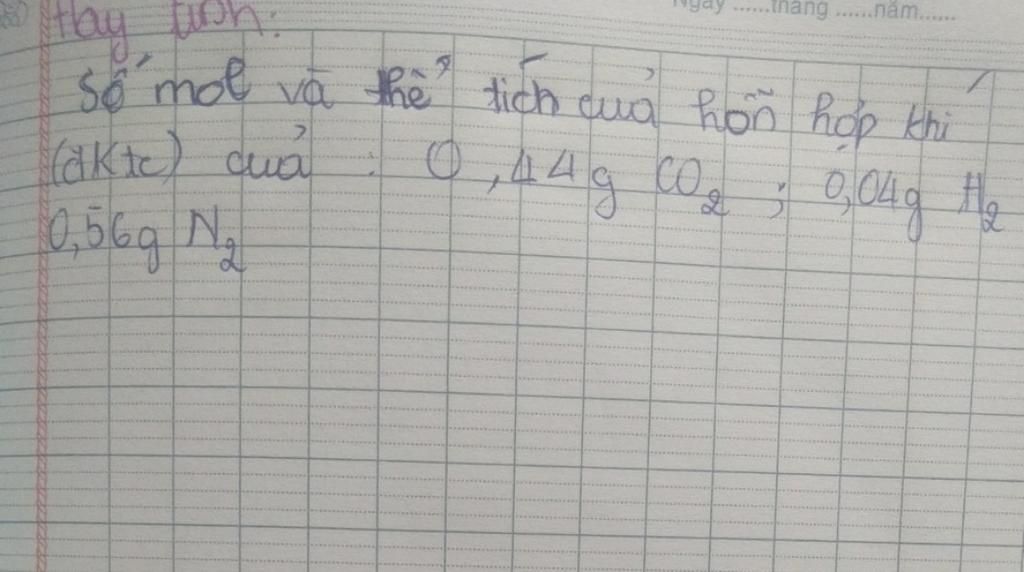 Hãy tính:
Số mol và thể tích của hỗn hợp khí
(đktc) của : 0,44g CO2 ; 0,04g H2
0,56g N2
Ngày ......tháng ......năm......